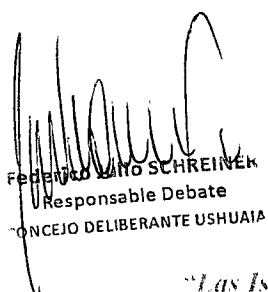 Federico Julio SCHREINER
Responsable Debate
CONCEJO DELIBERANTE USHUAIA
"Las Is